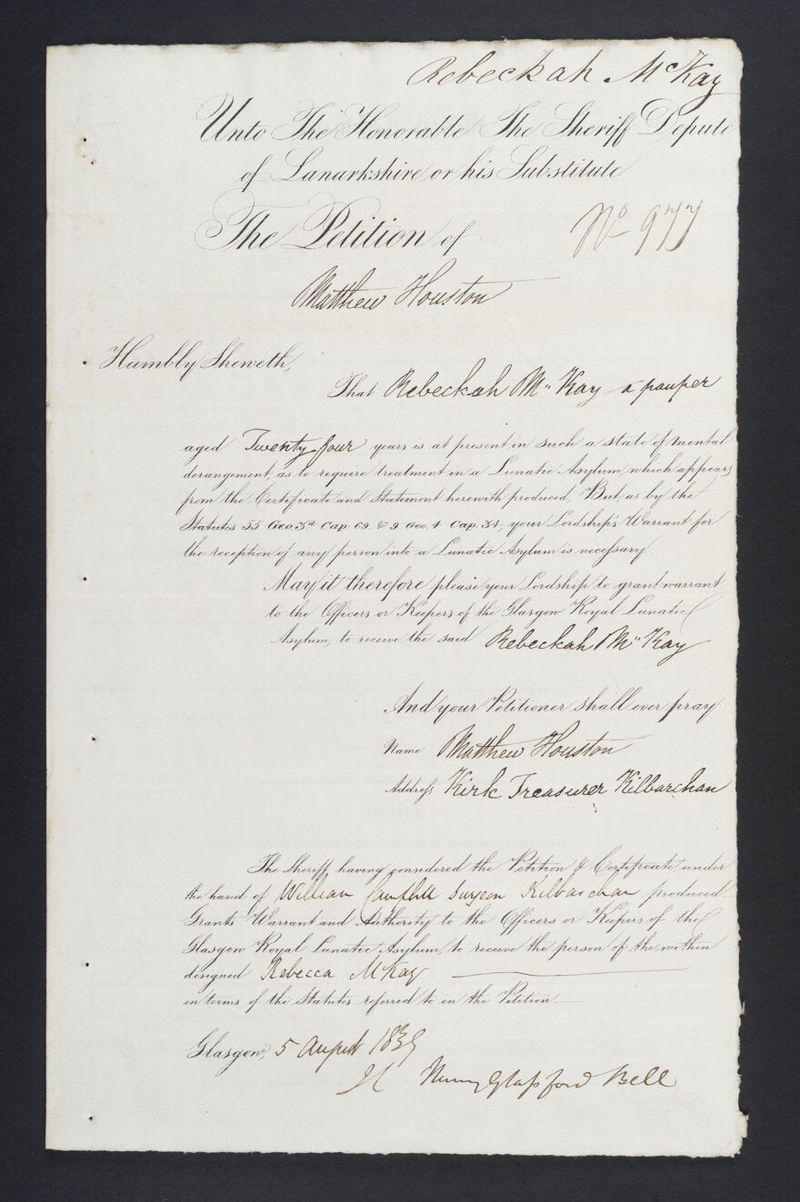 Rebeckah McKay
Unto The Honorable The Sheriff Depute
of Lanarkshire or his Substitute
The Petition of
No 977
Matthew Houston
Humbly Sheweth,
That Rebeckah Mc Kay a pauper
aged Twenty four years is at present in such a state of mental
derangement, as to require treatment in a Lunatic Asylum which appears
from the Certificate and Statement herewith produced, But, as by the
Statutes 55 Geo. 3d Cap. 69. & 9 Geo. 4 Cap. 34, your Lordship's Warrant for
the reception of any person into a Lunatic Asylum is necessary
May it therefore please your Lordship to grant warrant
to the Officers or Keepers of the Glasgow Royal Lunatic
Asylum, to receive the said Rebeckah Mc Kay
And your Petitioner shall ever pray
Name Matthew Houston
Address Kirk Treasurer Kilbarchan
The Sheriff having considered the Petition & Certificate under
the hand of William Campbell Surgeon Kilbarchan produced
Grants Warrant and Authority to the Officers or Keepers of the
Glasgow Royal Lunatic Asylum, to receive the person of the within
designed Rebecca McKay
in terms of the Statutes referred to in the Petition
Glasgow, 5 August 1839
Henry Glassford Bell